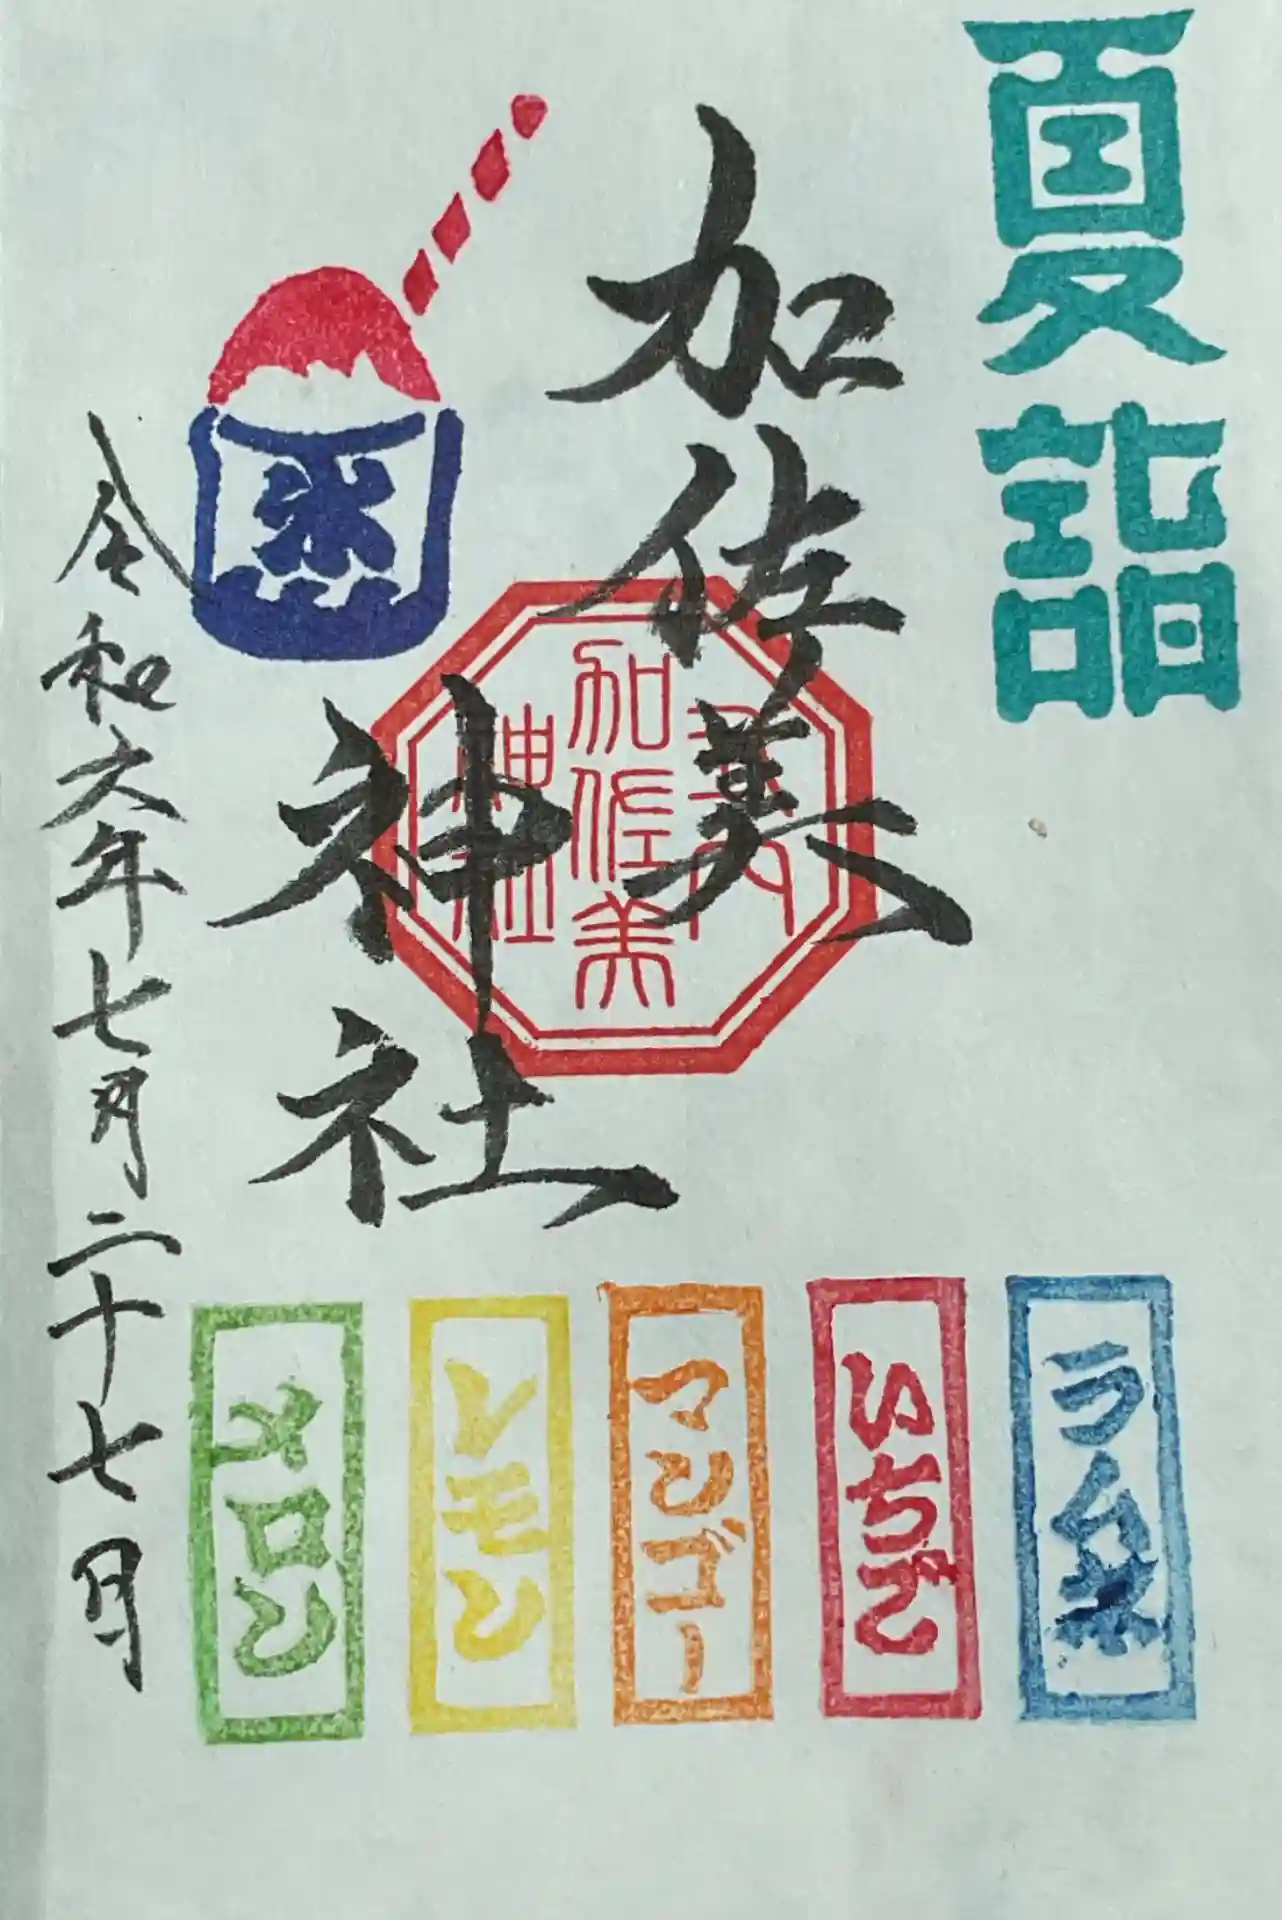 夏詣
加佐美
神社
加佐美
神社
氷
令和六年七月二十七日
ラムネ
いちご
マンゴー
レモン
メロン